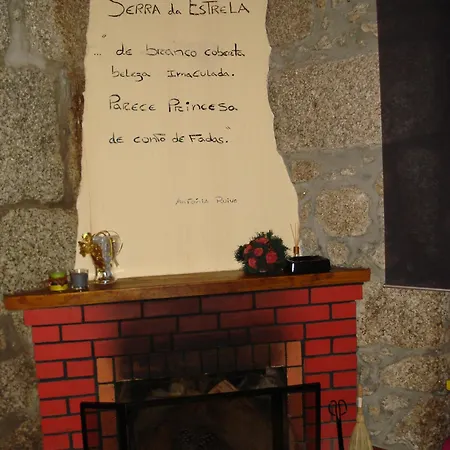 SERRA da ESTRELA
"... de branco coberta
beleza Imaculada.
Parece Princesa
de conto de Fadas."